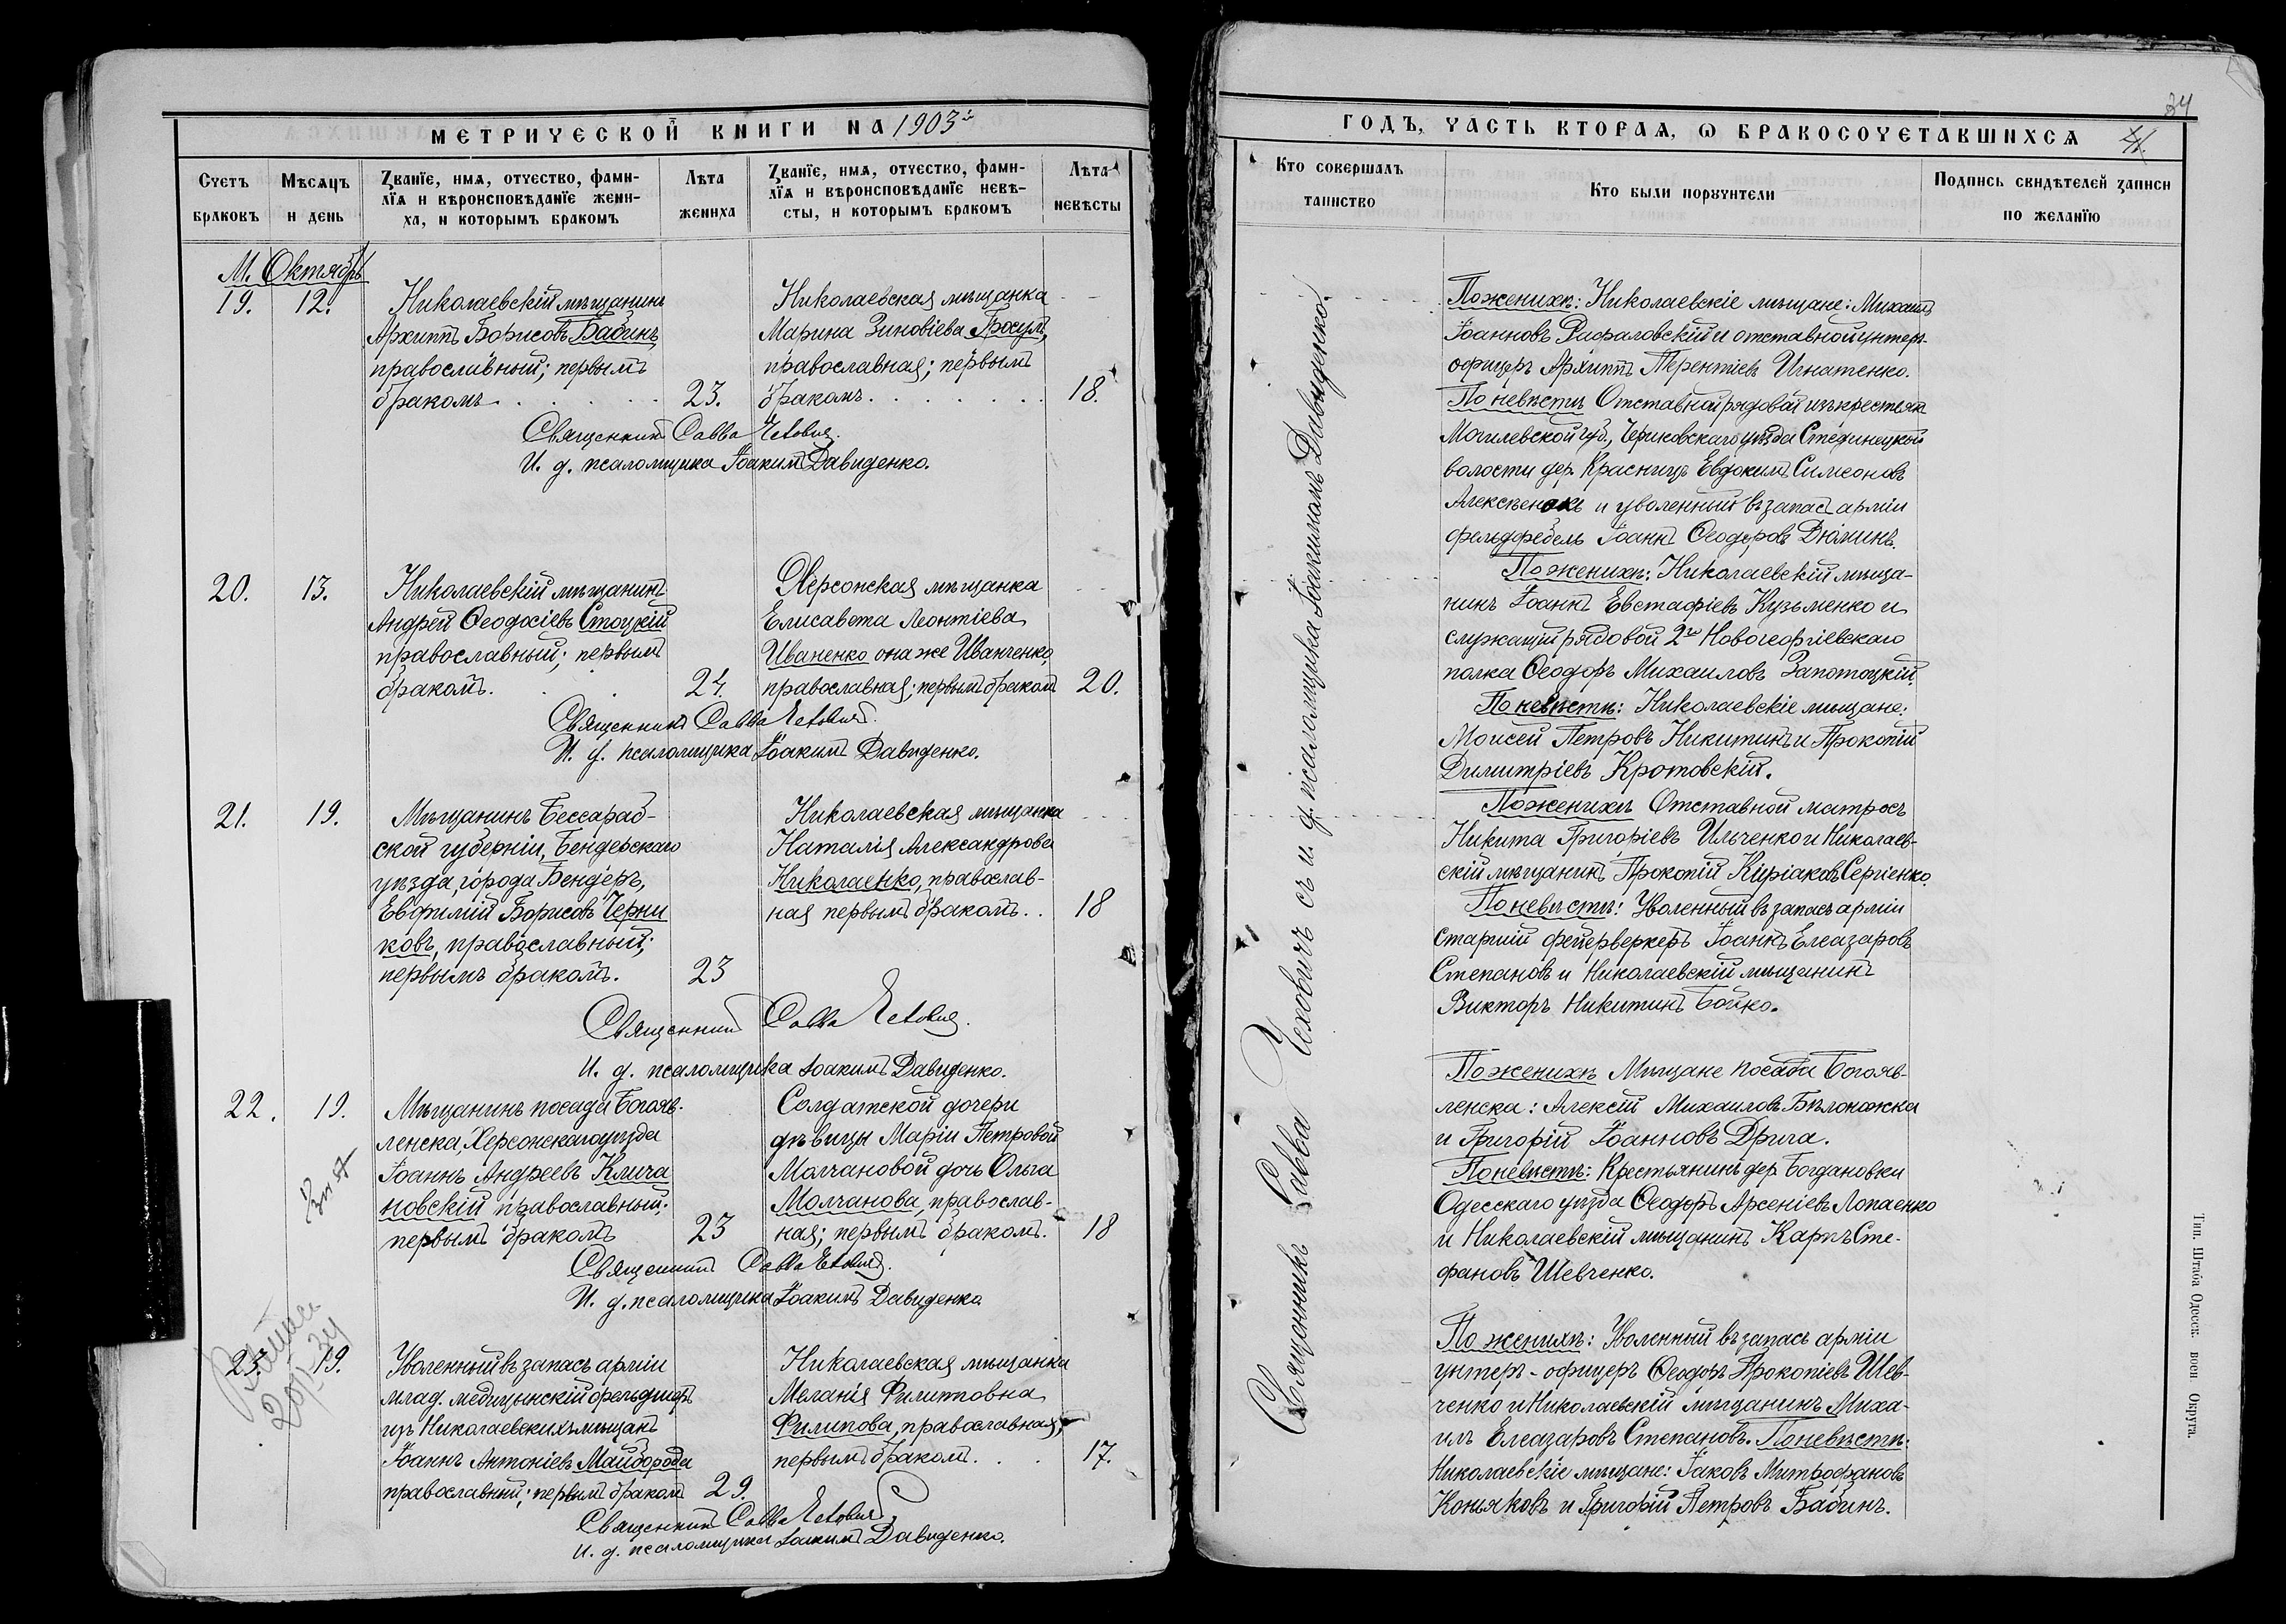 МЕТРИЧЕСКОЙ КНИГИ НА 1903й
Счетъ браковъ
Мѣсяцъ и день
Званїе, имя, отчество, фами-
лїя и вѣроисповѣданїе жени-
ха, и которымъ бракомъ
Лѣта жениха
Званїе, имя, отчество, фами-
лїя и вѣроисповѣданїе невѣ-
сты, и которымъ бракомъ
Лѣта невѣсты
М. Октябрь
19. 12.
Николаевскій мѣщанинъ
Архиппъ Борисовъ Бабинъ
православный; первымъ
бракомъ. 23.
Николаевская мѣщанка
Марина Зиновіева
православная; первымъ
бракомъ. 18.
Священникъ Савва Чеховичъ.
И. д. псаломщика Іоакимъ Давиденко.
20. 13.
Николаевскій мѣщанинъ
Андрей Ѳеодосіевъ Стоцкій
православный; первымъ
бракомъ. 24.
Херсонская мѣщанка
Елисавета Леонтіева
Иваненко она же Иванченко,
православная; первымъ бракомъ 20.
Священникъ Савва Чеховичъ.
И. д. псаломщика Іоакимъ Давиденко.
21. 19.
Мѣщанинъ Бессараб-
ской губерніи, Бендерскаго
уѣзда, города Бендеръ,
Евфимій Борисовъ Черни
ковъ, православный;
первымъ бракомъ. 23
Николаевская мѣщанка
Наталія Александрова
Николаенко, православ-
ная первымъ бракомъ. . 18
Священникъ Савва Чеховичъ.
И. д. псаломщика Іоакимъ Давиденко.
22. 19.
Мѣщанинъ посада Богояв-
ленска, Херсонскаго уѣзда
Іоаннъ Андреевъ Клича
новскій православный;
первымъ бракомъ 23
Солдатской дочери
дѣвицы Маріи Петровой
Молчановой дочь Ольга
Молчанова, православ-
ная; первымъ бракомъ. 18
Священникъ Савва Чеховичъ.
И. д. псаломщика Іоакимъ Давиденко
23. 19.
Уволенный въ запасъ арміи
млад. медицинскій фельдшеръ
изъ Николаевскихъ мѣщанъ
Іоаннъ Антоніевъ Майборода
православный; первымъ бракомъ 29.
Николаевская мѣщанка
Меланія Филипповна
Филипова, православная;
первымъ бракомъ. . . 17.
Священникъ Савва Чеховичъ
И. д. псаломщика Іоакимъ Давиденко.
34
ГОДЪ, ЧАСТЬ ВТОРАЯ, Ѡ БРАКОСОЧЕТАВШИХСЯ
Кто совершалъ таинство
Кто были поручители
Подпись свидѣтелей записи по желанїю
Священникъ Савва Чеховичъ съ и. д. псаломщика Іоакимомъ Давиденко.
По женихѣ: Николаевскіе мѣщане: Михаилъ
Іоанновъ Рафаловскій и отставной унтеръ-
офицеръ Архиппъ Терентіевъ Игнатенко.
По невѣстѣ Отставной рядовой изъ крестьянъ
Могилевской губ., Чериковскаго уѣзда
волости дер. Красницъ Евдокимъ Симеоновъ
и уволенный въ запасъ арміи
фельдфебель Іоаннъ Ѳеодоровъ Дюминъ.
По женихѣ: Николаевскій мѣща-
нинъ Іоаннъ Евстафіевъ Кузьменко и
служащій рядовой 2го Новогеоргіевскаго
полка Ѳеодоръ Михаиловъ Запотоцкій.
По невѣстѣ: Николаевскіе мѣщане:
Моисей Петровъ Никитинъ и Прокопій
Димитріевъ Кротовскій.
По женихѣ Отставной матросъ
Никита Григоріевъ Ильченко и Николаев-
скій мѣщанинъ Прокопій Киріаковъ Сергіенко.
По невѣстѣ: Уволенный въ запасъ арміи
старшій фейерверкеръ Іоаннъ Елеазаровъ
Степановъ и Николаевскій мѣщанинъ
Викторъ Никитинъ Бойко.
По женихѣ Мѣщане посада Богояв-
ленска: Алексій Михаиловъ Бѣлоножка
и Григорій Іоанновъ Дрига.
По невѣстѣ: Крестьянинъ дер. Богдановки
Одесскаго уѣзда Ѳеодоръ Арсеніевъ Лопаенко
и Николаевскій мѣщанинъ Карпъ Сте-
фановъ Шевченко.
По женихѣ: Уволенный въ запасъ арміи
унтеръ-офицеръ Ѳеодоръ Прокопіевъ Шев-
ченко и Николаевскій мѣщанинъ Миха-
илъ Елеазаровъ Степановъ. По невѣстѣ:
Николаевскіе мѣщане: Іаковъ Митрофановъ
Коньяковъ и Григорій Петровъ Бабинъ.
Тип. Штаба Одесск. воен Округа.